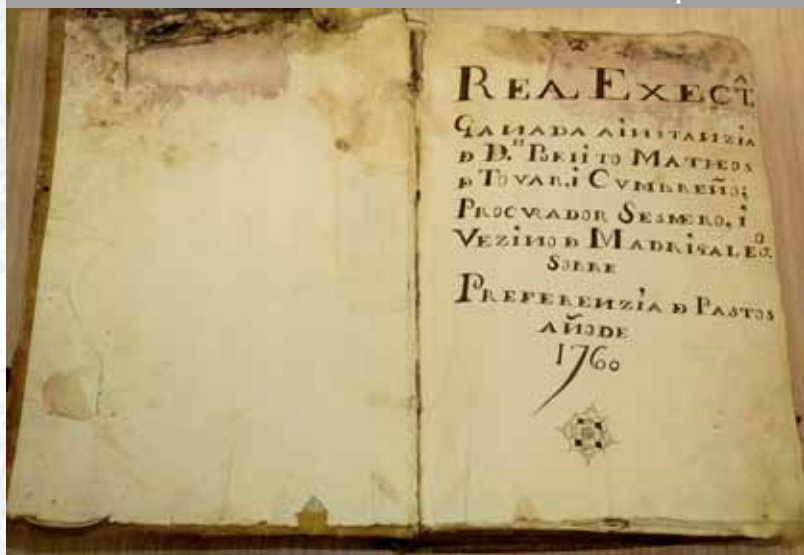 REAL EXECT.ᴬ
GANADA A INSTANZIA
D D.ⁿ BENITO MATHEOS
D TOVAR, i CVMBREÑO;
PROCVRADOR SESMERO, i
VEZINO D MADRIGALEJO.
SOBRE
PREFERENZIA D PASTOS
AÑO DE
1760